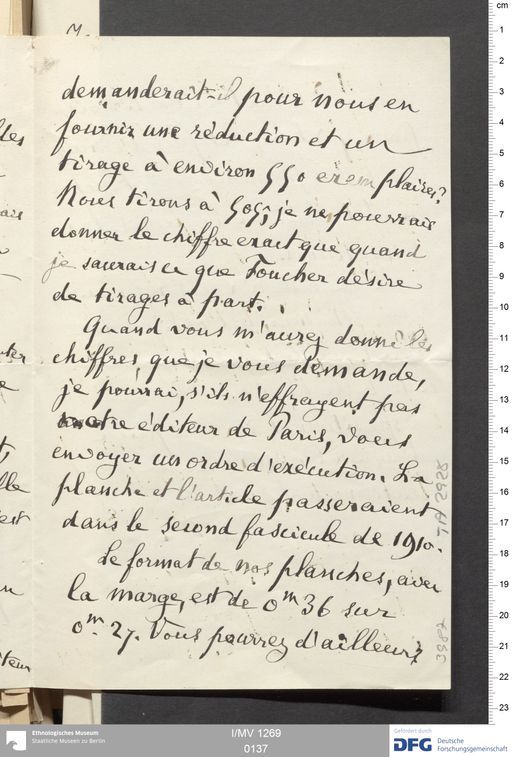 demanderait-il pour nous en
fournir une réduction et un
tirage à environ 550 exemplaires?
Nous tirons à 505; je ne pourrais
donner le chiffre exact que quand
je saurais ce que Foucher désire
de tirages à part.
Quand vous m'aurez donné les
chiffres que je vous demande,
je pourrai, s'ils n'effrayent pas
notre éditeur de Paris, vous
envoyer un ordre d'exécution. La
planche et l'article passeraient
dans le second fascicule de 1910.
Le format de nos planches, avec
la marge, est de 0m 36 sur
0m. 27. Vous pourrez d'ailleurs
3982
cm
1
2
3
4
5
6
7
8
9
10
11
12
13
14
15
16
17
18
19
20
21
22
23
Ethnologisches Museum
Staatliche Museen zu Berlin
I/MV 1269
0137
Gefördert durch
DFG Deutsche
Forschungsgemeinschaft